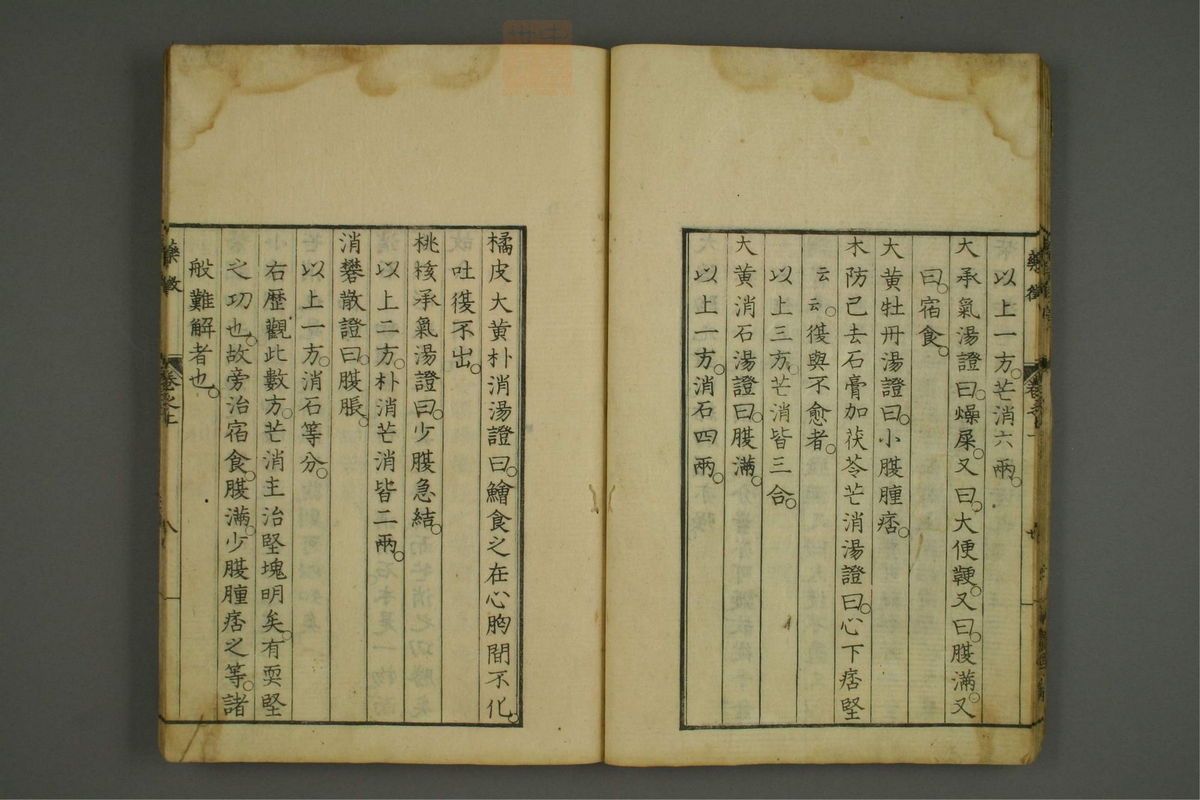 以上一方。芒消六兩。
大承氣湯證曰。燥屎。又曰。大便鞕。又曰。腹滿。又
曰。宿食。
大黃牡丹湯證曰。小腹腫痞。
木防己去石膏加茯苓芒消湯證曰。心下痞堅
云云。復與不愈者。
以上三方。芒消皆三合。
大黃消石湯證曰。腹滿。
以上一方。消石四兩。
橘皮大黃朴消湯證曰。鱠食之在心胸間不化。
吐復不出。
桃核承氣湯證曰。少腹急結。
以上二方。朴消芒消皆二兩。
消礬散證曰。腹脹。
以上一方。消石等分。
右歷觀此數方。芒消主治堅塊明矣。有耎堅
之功也。故旁治宿食。腹滿。少腹腫痞之等。諸
般難解者也。
藥徵
卷之上
八